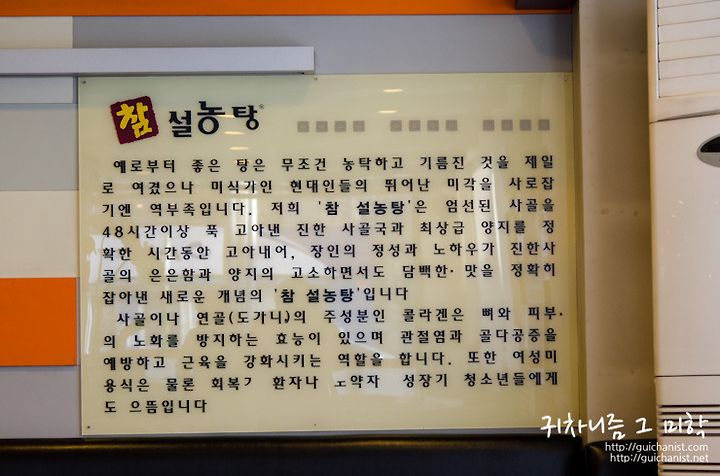 참 설농탕
예로부터 좋은 탕은 무조건 농탁하고 기름진 것을 제일
로 여겼으나 미식가인 현대인들의 뛰어난 미각을 사로잡
기엔 역부족입니다. 저희 '참 설농탕'은 엄선된 사골을
48시간이상 푹 고아낸 진한 사골국과 최상급 양지를 정
확한 시간동안 고아내어, 장인의 정성과 노하우가 진한사
골의 은은함과 양지의 고소하면서도 담백한· 맛을 정확히
잡아낸 새로운 개념의 '참 설농탕'입니다
사골이나 연골(도가니)의 주성분인 콜라겐은 뼈와 피부·
의 노화를 방지하는 효능이 있으며 관절염과 골다공증을
예방하고 근육을 강화시키는 역할을 합니다. 또한 여성미
용식은 물론 회복기 환자나 노약자 성장기 청소년들에게
도 으뜸입니다
귀차니즘 그 미학
http://guichanist.com
http://guichanist.net